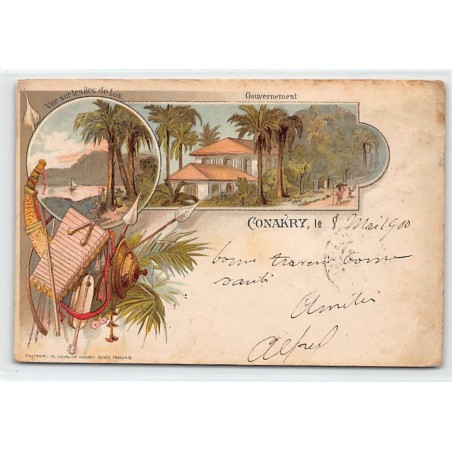 Vue sur les îles de Los
Gouvernement
CONAKRY, le 8 Mai 1900
bonne traversée bonne
santé
Amitiés
Alfred